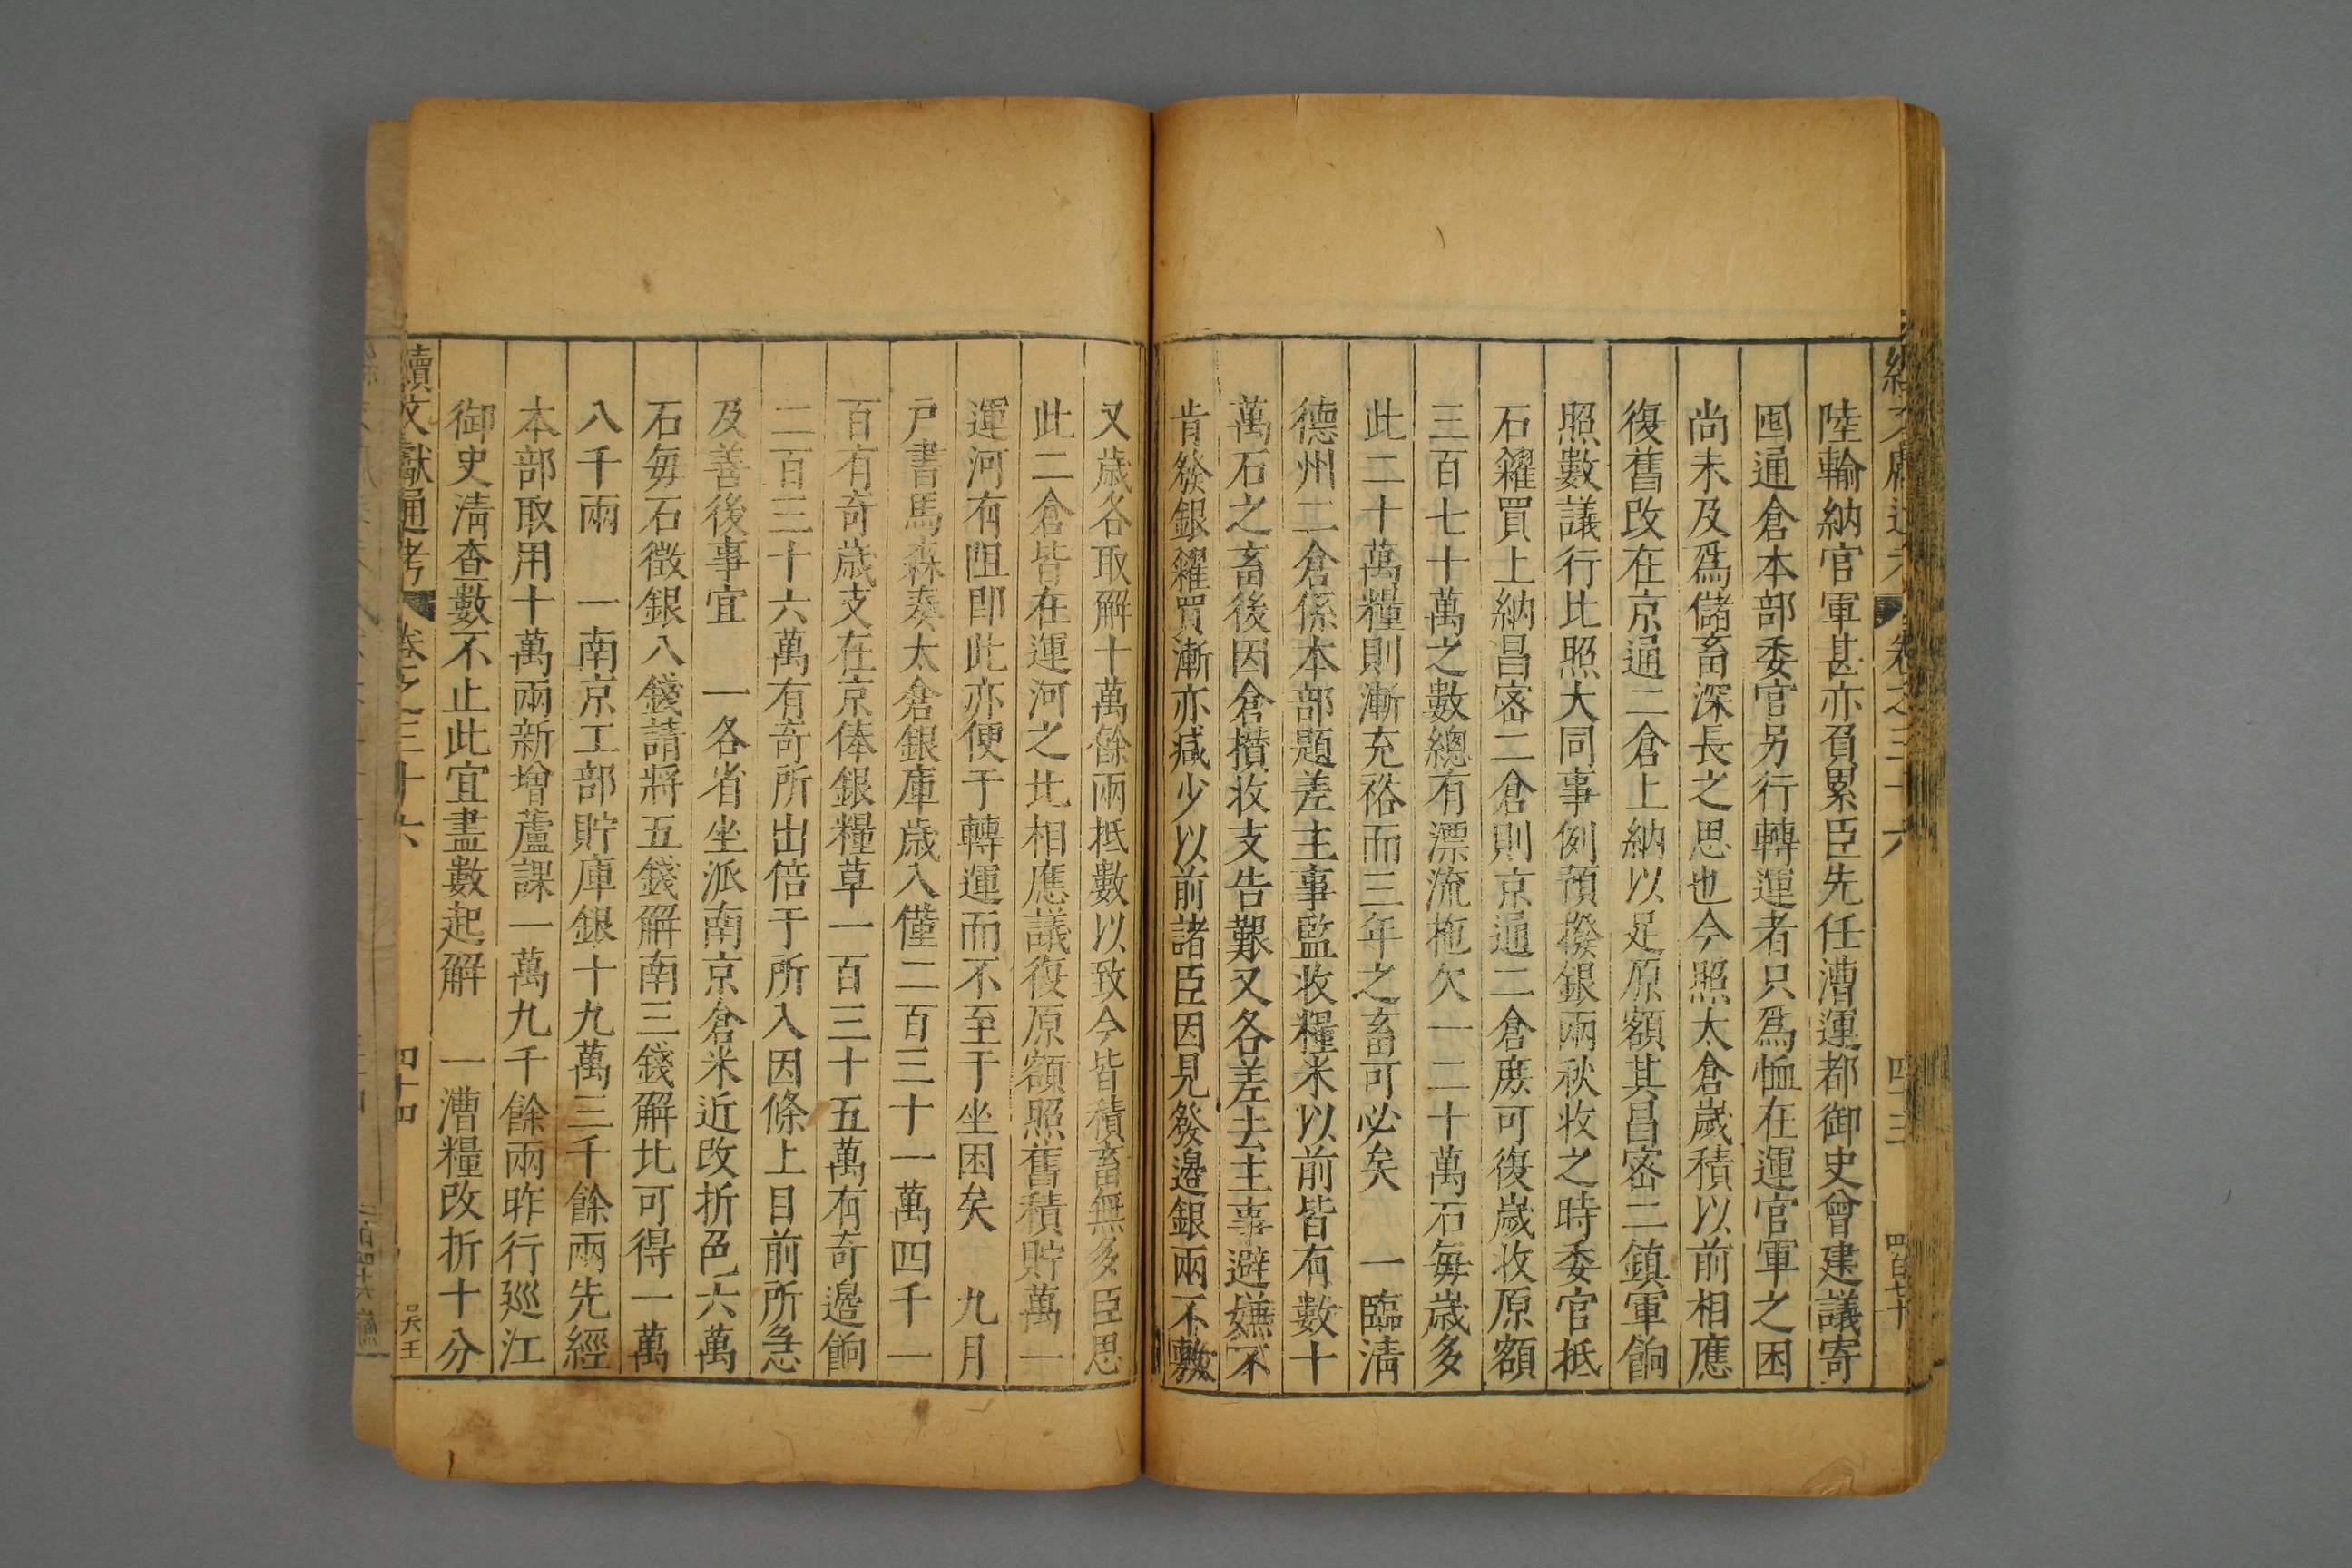 陸輸納官軍甚亦負累臣先任漕運都御史曾建議寄
囤通倉本部委官另行轉運者只爲恤在運官軍之困
尚未及爲儲畜深長之思也今照太倉歲積以前相應
復舊改在京通二倉上納以足原額其昌密二鎮軍餉
照數議行比照大同事例預撥銀兩秋收之時委官抵
石糴買上納昌密二倉則京通二倉庻可復歲收原額
三百七十萬之數總有漂流拖欠一二十萬石每歲多
此二十萬糧則漸充裕而三年之畜可必矣　一臨清
德州二倉係本部題差主事監收糧米以前皆有數十
萬石之畜後因倉攅收支告艱又各差去主事避嫌不
肯發銀糴買漸亦减少以前諸臣因見發邊銀兩不敷
又歲各取解十萬餘兩抵數以致今皆積畜無多臣思
此二倉皆在運河之北相應議復原額照舊積貯萬一
運河有阻卽此亦便于轉運而不至于坐困矣　九月
戶書馬森奏太倉銀庫歲入僅二百三十一萬四千一
百有奇歲支在京俸銀糧草一百三十五萬有奇邊餉
二百三十六萬有奇所出倍于所入因條上目前所急
及善後事宜　一各省坐派南京倉米近改折色六萬
石每石徵銀八錢請將五錢解南三錢解北可得一萬
八千兩　一南京工部貯庫銀十九萬三千餘兩先經
本部取用十萬兩新增蘆課一萬九千餘兩昨行廵江
御史清查數不止此宜盡數起解　一漕糧改折十分
續文獻通考　卷之三十六　四十四